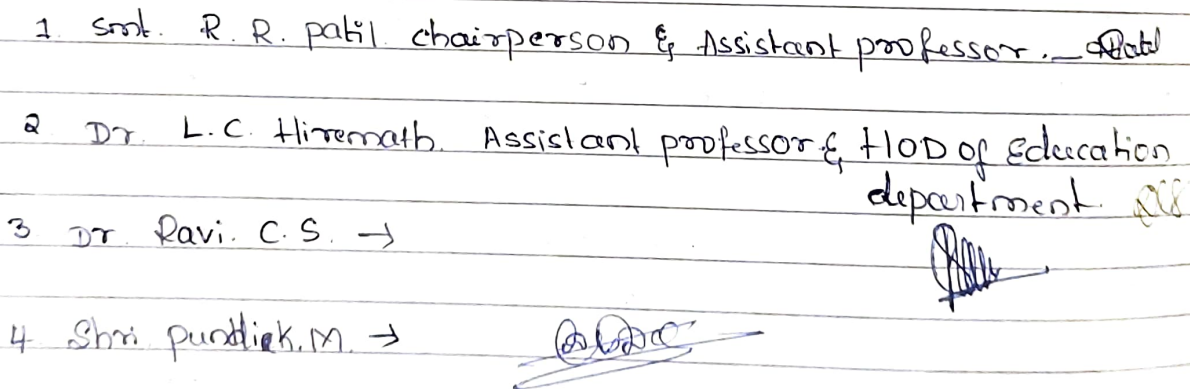 1. Smt. R. R. patil chairperson & Assistant professor. _
2 Dr. L. C. Hiremath. Assistant professor & HOD of Education
department.
3 Dr Ravi. C. S. →
4 Shri pundlik. M. →